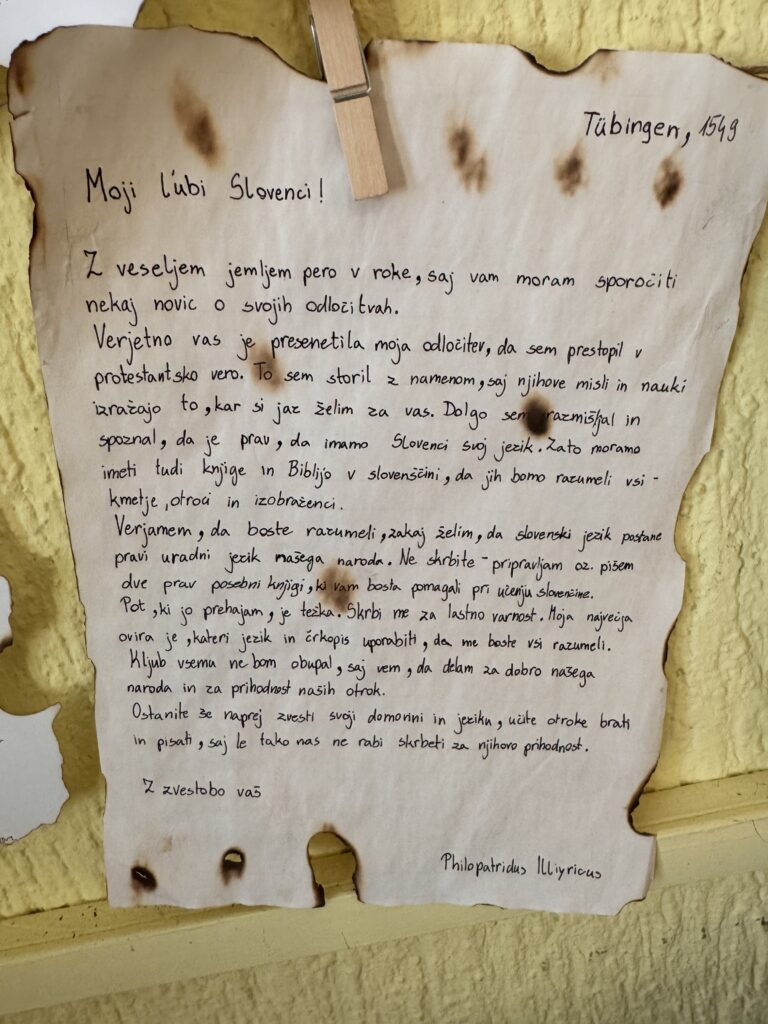 Tübingen, 1549
Moji ľubi Slovenci!
Z veseljem jemljem pero v roke, saj vam moram sporočiti
nekaj novic o svojih odločitvah.
Verjetno vas je presenetila moja odločitev, da sem prestopil v
protestantsko vero. To sem storil z namenom, saj njihove misli in nauki
izražajo to, kar si jaz želim za vas. Dolgo sem razmišljal in
spoznal, da je prav, da imamo Slovenci svoj jezik. Zato moramo
imeti tudi knjige in Biblijo v slovenščini, da jih bomo razumeli vsi -
kmetje, otroci in izobraženci.
Verjamem, da boste razumeli, zakaj želim, da slovenski jezik postane
pravi uradni jezik našega naroda. Ne skrbite - pripravljam oz. pišem
dve prav posebni knjigi, ki vam bosta pomagali pri učenju slovenščine.
Pot, ki jo prehajam, je težka. Skrbi me za lastno varnost. Moja največja
ovira je, kateri jezik in črkopis uporabiti, da me boste vsi razumeli.
Kljub vsemu ne bom obupal, saj vem, da delam za dobro našega
naroda in za prihodnost naših otrok.
Ostanite še naprej zvesti svoji domovini in jeziku, učite otroke brati
in pisati, saj le tako nas ne rabi skrbeti za njihovo prihodnost.
Z zvestobo vaš
Philopatridus Illiyricus